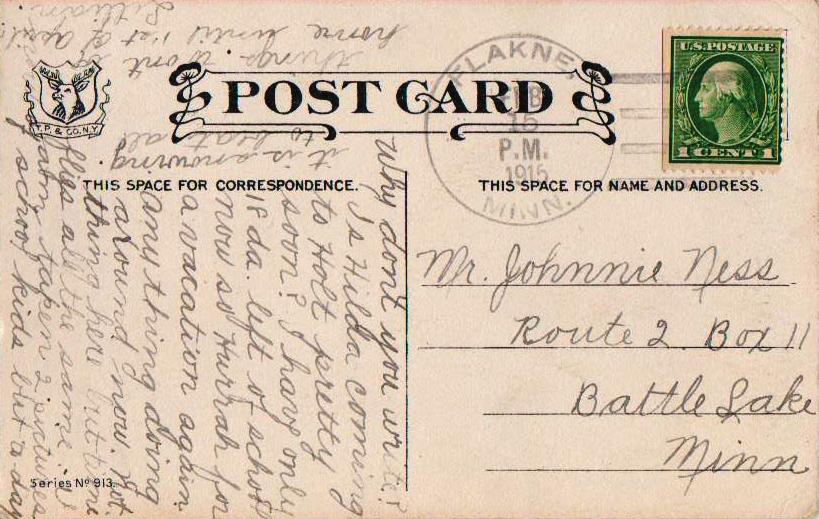 POST CARD
T.P. & CO. N.Y.
THIS SPACE FOR CORRESPONDENCE.
THIS SPACE FOR NAME AND ADDRESS.
U.S. POSTAGE
1 CENT 1
FLAKNE,
FEB
15
P.M.
1915
MINN.
Mr. Johnnie Ness
Route 2. Box 11
Battle Lake
Minn
Why dont you write?
Is Hilda coming
to Holt pretty
soon? I have only
18 da. left of school
now so Hurrah for
a vacation again
anything doing
around now, not
thing here but time
flies all the same. I
taken 2 pictures
of school kids but a day
it is snowing
to beat all
things wont
home until 1st of April
Lillian
Series No 913.